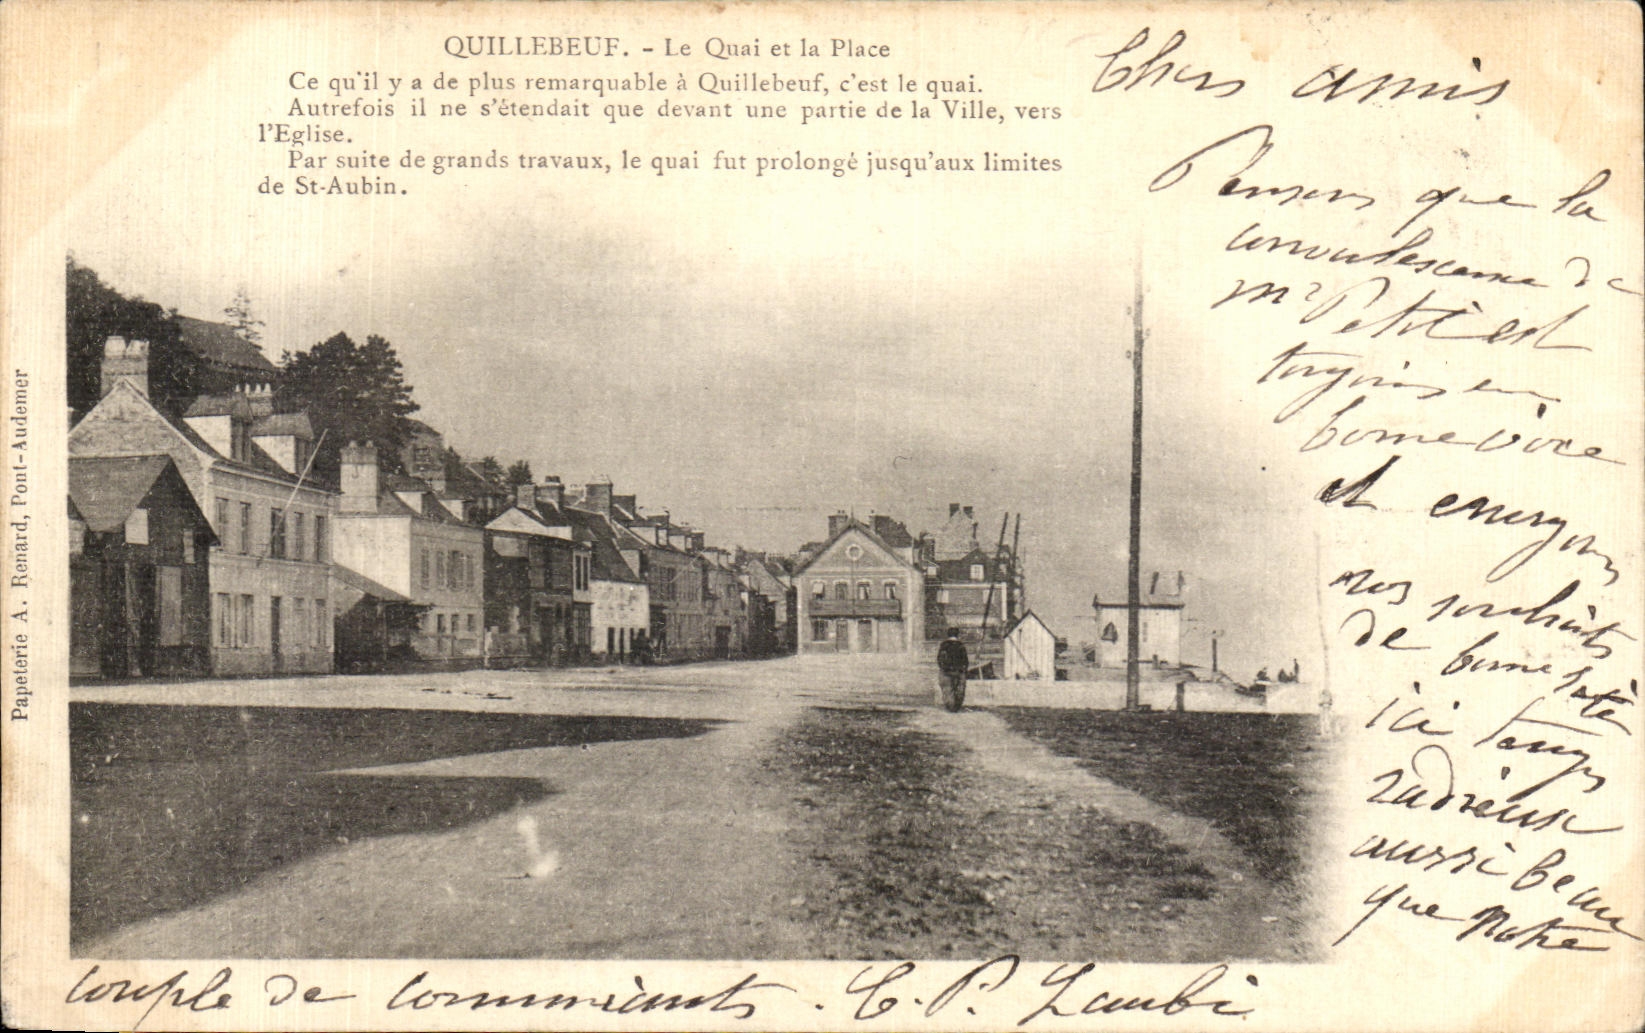 QUILLEBEUF. - Le Quai et la Place
Ce qu'il y a de plus remarquable à Quillebeuf, c'est le quai.
Autrefois il ne s'étendait que devant une partie de la Ville, vers
l'Eglise.
Par suite de grands travaux, le quai fut prolongé jusqu'aux limites
de St-Aubin.
Papeterie A. Renard, Pont-Audemer
Chers amis
Pensons que la
convalescence de
Mr Petit est
toujours en
bonne voie
et envoyons
nos souhaits
de bonne santé
ici temps
radieux
aussi beau
que notre
couple de communiants. C. P. Laubi